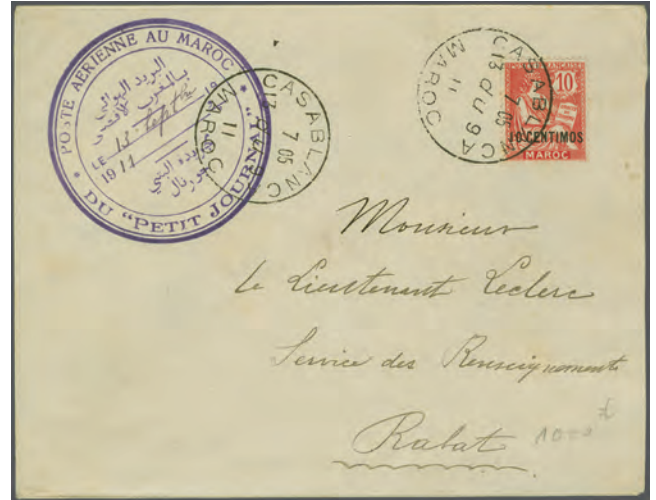 POSTE AÉRIENNE AU MAROC
البريد الهوائي
بالمغرب الأقصى
LE 13 Septbre
1911
DU "PETIT JOURNAL"
CASABLANCA
7 05
13
11
MAROC
CASABLANCA
7 05
13
11
MAROC
10
10 CENTIMOS
MAROC
Monsieur
le Lieutenant Leclerc
Service des Renseignements
Rabat
1000